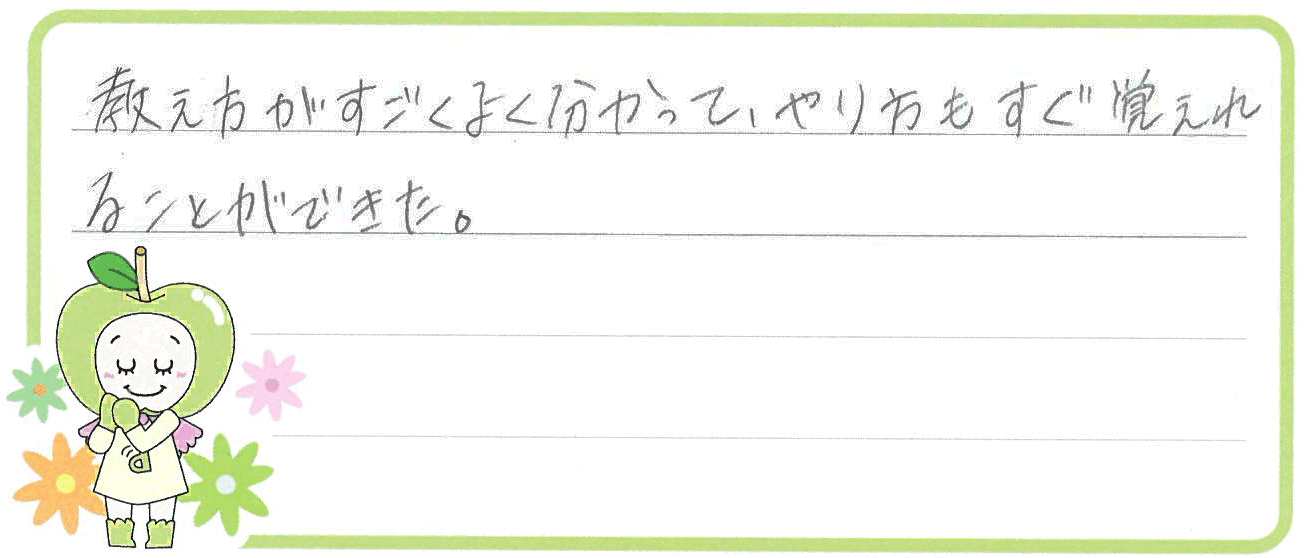 教え方がすごくよく分かって、やり方もすぐ覚えれ
ることができた。